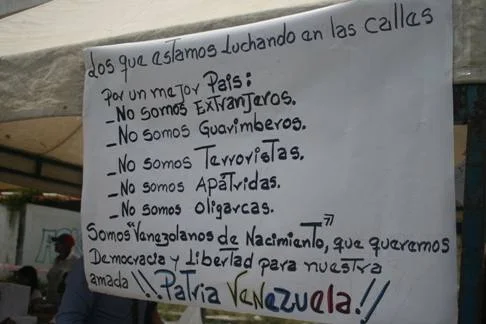 Los que estamos Luchando en las calles
Por un mejor País:
_No somos Extranjeros.
_No somos Guarimberos.
_No somos Terroristas.
_No somos Apátridas.
_No somos Oligarcas.
Somos "Venezolanos de Nacimiento," que queremos
Democracia y Libertad para nuestra
amada !!Patria Venezuela!!